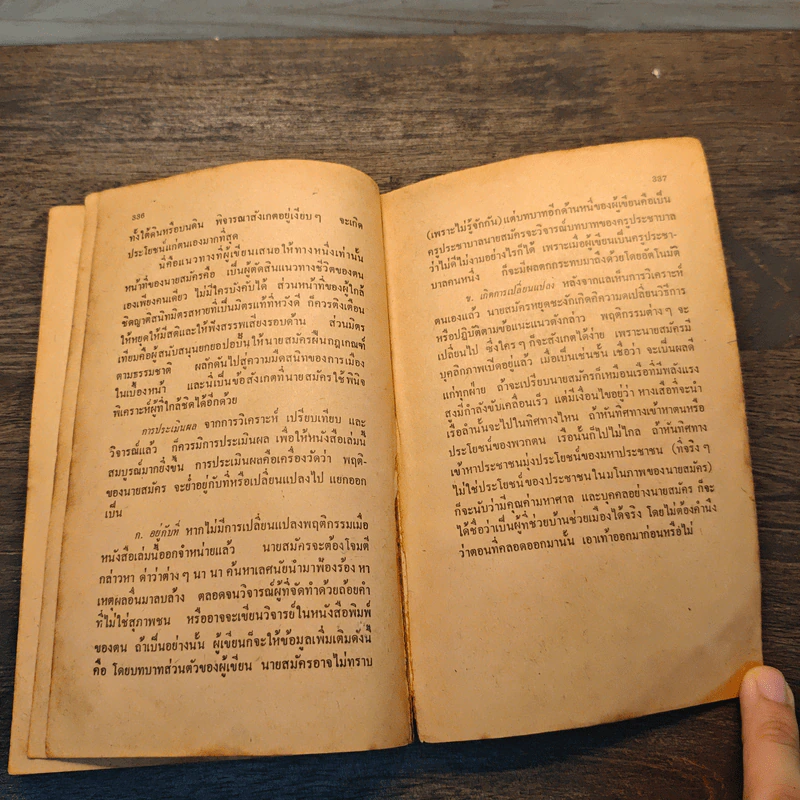 336
ทั้งใต้ดินหรือบนดิน พิจารณาสังเกตอยู่เงียบ ๆ จะเกิด
ประโยชน์แก่ตนเองมากที่สุด
นี่คือแนวทางที่ผู้เขียนเสนอให้ทางหนึ่งเท่านั้น
หน้าที่ของนายสมัครคือ เป็นผู้ตัดสินแนวทางชีวิตของตน
เองเพียงคนเดียว ไม่มีใครบังคับได้ ส่วนหน้าที่ของผู้ใกล้
ชิดญาติสนิทมิตรสหายที่เป็นมิตรแท้ที่หวังดี ก็ควรติงเตือน
ให้หยุดให้มีสติและให้ฟังสรรพเสียงรอบด้าน ส่วนมิตร
เทียมคือผู้สนับสนุนยกยอปอปั้นให้นายสมัครฝืนกฎเกณฑ์
ตามธรรมชาติ ผลักดันไปสู่ความมืดสนิทของการเมือง
ในเบื้องหน้า และนี่เป็นข้อสังเกตที่นายสมัครใช้พินิจ
พิเคราะห์ผู้ที่ใกล้ชิดได้อีกด้วย
การประเมินผล จากการวิเคราะห์ เปรียบเทียบ และ
วิจารณ์แล้ว ก็ควรมีการประเมินผล เพื่อให้หนังสือเล่มนี้
สมบูรณ์มากยิ่งขึ้น การประเมินผลคือเครื่องวัดว่า พฤติ-
ของนายสมัคร จะย่ำอยู่กับที่หรือเปลี่ยนแปลงไป แยกออก
เป็น
ก. อยู่กับที่ หากไม่มีการเปลี่ยนแปลงพฤติกรรมเมื่อ
หนังสือเล่มนี้ออกจำหน่ายแล้ว นายสมัครจะต้องโจมตี
กล่าวหา ด่าว่าต่าง ๆ นา นา ค้นหาเลศนัยนำมาฟ้องร้อง หา
เหตุผลอื่นมาลบล้าง ตลอดจนวิจารณ์ผู้ที่จัดทำด้วยถ้อยคำ
ที่ไม่ใช่สุภาพชน หรืออาจจะเขียนวิจารย์ในหนังสือพิมพ์
ของตน ถ้าเป็นอย่างนั้น ผู้เขียนก็จะให้ข้อมูลเพิ่มเติมดังนี้
คือ โดยบทบาทส่วนตัวของผู้เขียน นายสมัครอาจไม่ทราบ
337
(เพราะไม่รู้จักกัน) แต่บทบาทอีกด้านหนึ่งของผู้เขียนคือเป็น
ครูประชาบาลนายสมัครจะวิจารณ์บทบาทของครูประชาบาล
ว่าไม่ดีไม่งามอย่างไรก็ได้ เพราะเมื่อผู้เขียนเป็นครูประชา-
บาลคนหนึ่ง ก็จะมีผลตกกระทบมาถึงด้วยโดยอัตโนมัติ
ข. เกิดการเปลี่ยนแปลง หลังจากแลเห็นการวิเคราะห์
ตนเองแล้ว นายสมัครหยุดชะงักเกิดคิดความดเปลี่ยนวิธีการ
หรือปฏิบัติตามข้อแนะแนวดังกล่าว พฤติกรรมต่าง ๆ จะ
เปลี่ยนไป ซึ่งใคร ๆ ก็จะสังเกตได้ง่าย เพราะนายสมัครมี
บุคลิกภาพเปิดอยู่แล้ว เมื่อเป็นเช่นนั้น เชื่อว่า จะเป็นผลดี
แก่ทุกฝ่าย ถ้าจะเปรียบนายสมัครก็เหมือนเรือที่มีพลังแรง
สูงมีกำลังขับเคลื่อนเร็ว แต่มีเงื่อนไขอยู่ว่า หางเสือที่จะนำ
เรือลำนั้นจะไปในทิศทางไหน ถ้าหันทิศทางเข้าหาตนหรือ
ประโยชน์ของพวกตน เรือนั้นก็ไปไม่ไกล ถ้าหันทิศทาง
เข้าหาประชาชนมุ่งประโยชน์ของมหาประชาชน (ที่จริง ๆ
ไม่ใช่ประโยชน์ของประชาชนในมโนภาพของนายสมัคร)
ก็จะนับว่ามีคุณค่ามหาศาล และบุคคลอย่างนายสมัคร ก็จะ
ได้ชื่อว่าเป็นผู้ที่ช่วยบ้านช่วยเมืองได้จริง โดยไม่ต้องคำนึง
ว่าตอนที่คลอดออกมานั้น เอาเท้าออกมาก่อนหรือไม่